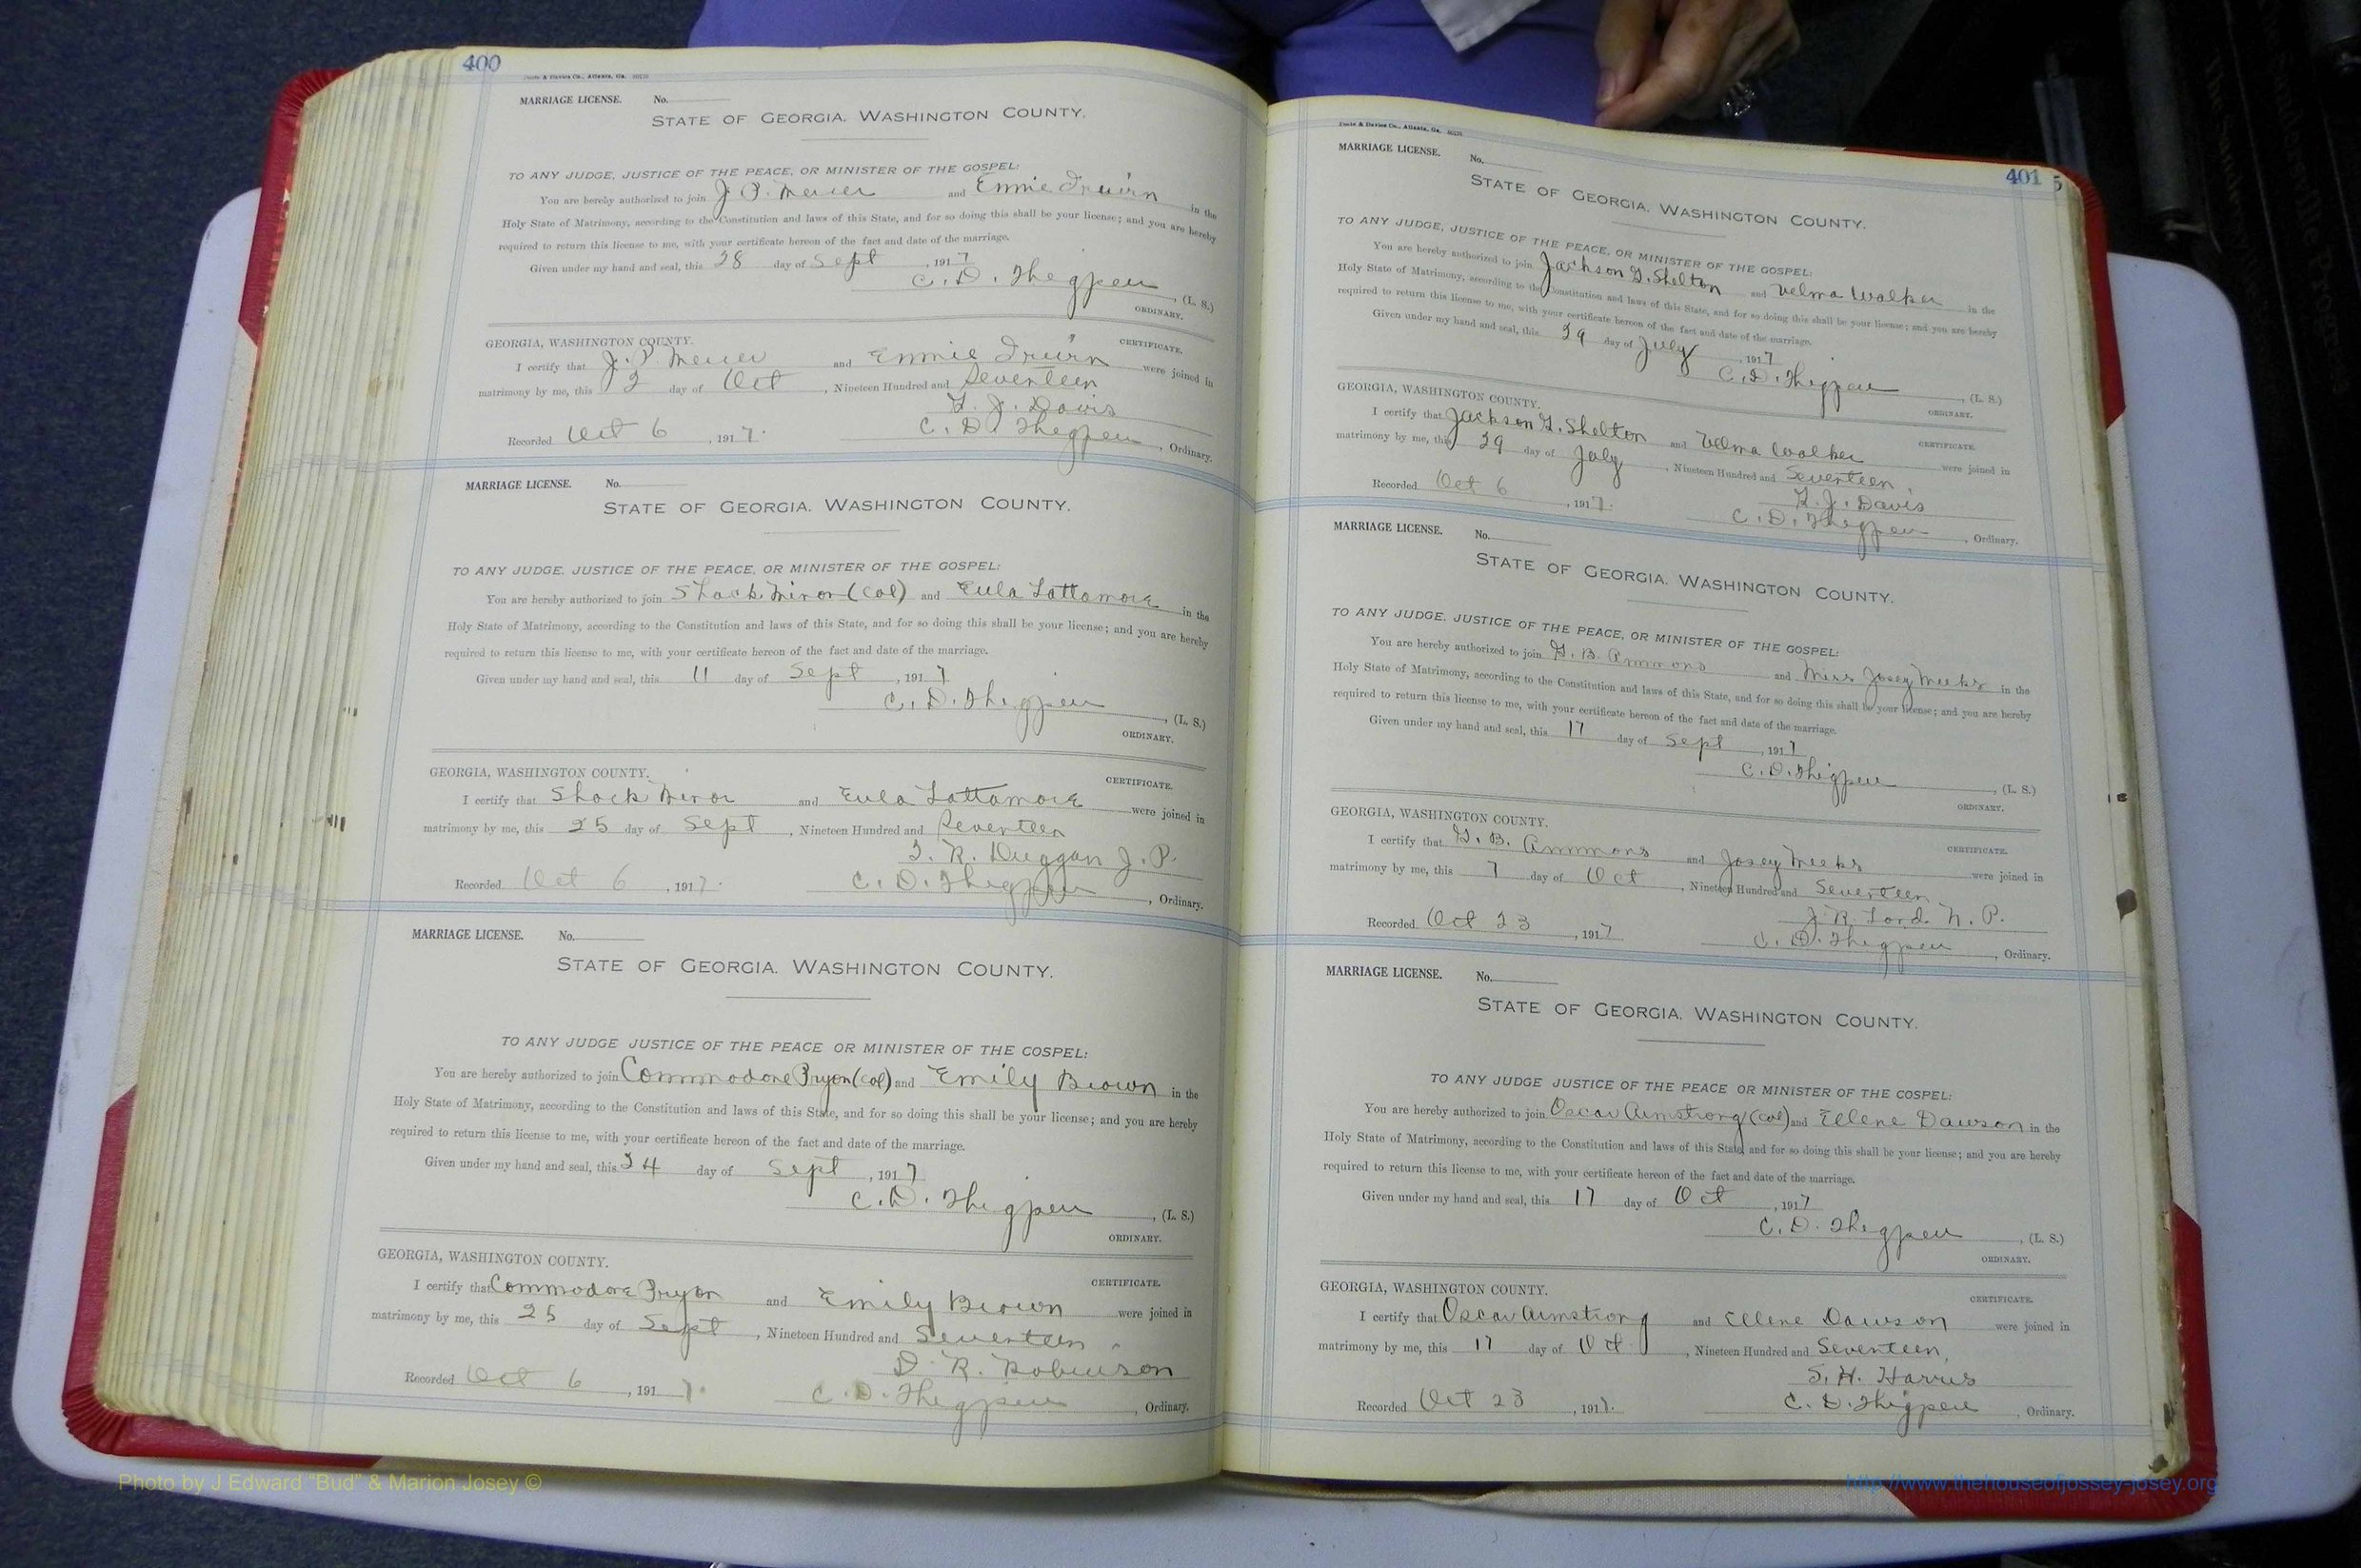 400
Foote & Davies Co., Atlanta, Ga.
MARRIAGE LICENSE. No.
STATE OF GEORGIA. WASHINGTON COUNTY.
TO ANY JUDGE, JUSTICE OF THE PEACE, OR MINISTER OF THE GOSPEL:
You are hereby authorized to join J. P. and Emmie in the
Holy State of Matrimony, according to the Constitution and laws of this State, and for so doing this shall be your license; and you are hereby
required to return this license to me, with your certificate hereon of the fact and date of the marriage.
Given under my hand and seal, this 28 day of Sept, 1917
C. D. Thigpen, (L. S.)
ORDINARY.
GEORGIA, WASHINGTON COUNTY. CERTIFICATE.
I certify that J. P. and Emmie were joined in
matrimony by me, this 2 day of Oct, Nineteen Hundred and Seventeen
T. J. Davis
Recorded Oct 6, 1917. C. D. Thigpen, Ordinary.
MARRIAGE LICENSE. No.
STATE OF GEORGIA. WASHINGTON COUNTY.
TO ANY JUDGE, JUSTICE OF THE PEACE, OR MINISTER OF THE GOSPEL:
You are hereby authorized to join Shack (Col) and Eula Lattamore in the
Holy State of Matrimony, according to the Constitution and laws of this State, and for so doing this shall be your license; and you are hereby
required to return this license to me, with your certificate hereon of the fact and date of the marriage.
Given under my hand and seal, this 11 day of Sept, 1917
C. D. Thigpen, (L. S.)
ORDINARY.
GEORGIA, WASHINGTON COUNTY. CERTIFICATE.
I certify that Shack and Eula Lattamore were joined in
matrimony by me, this 25 day of Sept, Nineteen Hundred and Seventeen
R. Duggan J. P.
Recorded Oct 6, 1917. C. D. Thigpen, Ordinary.
MARRIAGE LICENSE. No.
STATE OF GEORGIA. WASHINGTON COUNTY.
TO ANY JUDGE JUSTICE OF THE PEACE OR MINISTER OF THE GOSPEL:
You are hereby authorized to join Commodore Pryor (Col) and Emily Brown in the
Holy State of Matrimony, according to the Constitution and laws of this State, and for so doing this shall be your license; and you are hereby
required to return this license to me, with your certificate hereon of the fact and date of the marriage.
Given under my hand and seal, this 24 day of Sept, 1917
C. D. Thigpen, (L. S.)
ORDINARY.
GEORGIA, WASHINGTON COUNTY. CERTIFICATE.
I certify that Commodore Pryor and Emily Brown were joined in
matrimony by me, this 25 day of Sept, Nineteen Hundred and Seventeen
D. R. Robinson
Recorded Oct 6, 1917. C. D. Thigpen, Ordinary.
401
Foote & Davies Co., Atlanta, Ga.
MARRIAGE LICENSE. No.
STATE OF GEORGIA. WASHINGTON COUNTY.
TO ANY JUDGE, JUSTICE OF THE PEACE, OR MINISTER OF THE GOSPEL:
You are hereby authorized to join Jackson G. Shelton and Velma Walker in the
Holy State of Matrimony, according to the Constitution and laws of this State, and for so doing this shall be your license; and you are hereby
required to return this license to me, with your certificate hereon of the fact and date of the marriage.
Given under my hand and seal, this 29 day of July, 1917
C. D. Thigpen, (L. S.)
ORDINARY.
GEORGIA, WASHINGTON COUNTY. CERTIFICATE.
I certify that Jackson G. Shelton and Velma Walker were joined in
matrimony by me, this 29 day of July, Nineteen Hundred and Seventeen.
T. J. Davis
Recorded Oct 6, 1917. C. D. Thigpen, Ordinary.
MARRIAGE LICENSE. No.
STATE OF GEORGIA. WASHINGTON COUNTY.
TO ANY JUDGE, JUSTICE OF THE PEACE, OR MINISTER OF THE GOSPEL:
You are hereby authorized to join G. B. Ammons and Miss Josey Meeks in the
Holy State of Matrimony, according to the Constitution and laws of this State, and for so doing this shall be your license; and you are hereby
required to return this license to me, with your certificate hereon of the fact and date of the marriage.
Given under my hand and seal, this 17 day of Sept, 1917
C. D. Thigpen, (L. S.)
ORDINARY.
GEORGIA, WASHINGTON COUNTY. CERTIFICATE.
I certify that G. B. Ammons and Josey Meeks were joined in
matrimony by me, this 7 day of Oct, Nineteen Hundred and Seventeen
J. R. Lord. N. P.
Recorded Oct 23, 1917 C. D. Thigpen, Ordinary.
MARRIAGE LICENSE. No.
STATE OF GEORGIA. WASHINGTON COUNTY.
TO ANY JUDGE JUSTICE OF THE PEACE OR MINISTER OF THE GOSPEL:
You are hereby authorized to join Oscar Armstrong (Col) and Ellene Dawson in the
Holy State of Matrimony, according to the Constitution and laws of this State, and for so doing this shall be your license; and you are hereby
required to return this license to me, with your certificate hereon of the fact and date of the marriage.
Given under my hand and seal, this 17 day of Oct, 1917
C. D. Thigpen, (L. S.)
ORDINARY.
GEORGIA, WASHINGTON COUNTY. CERTIFICATE.
I certify that Oscar Armstrong and Ellene Dawson were joined in
matrimony by me, this 17 day of Oct, Nineteen Hundred and Seventeen,
S. H. Harris
Recorded Oct 23, 1917. C. D. Thigpen, Ordinary.
Photo by J Edward "Bud" & Marion Josey ©
http://www.thehouseofjossey-josey.org